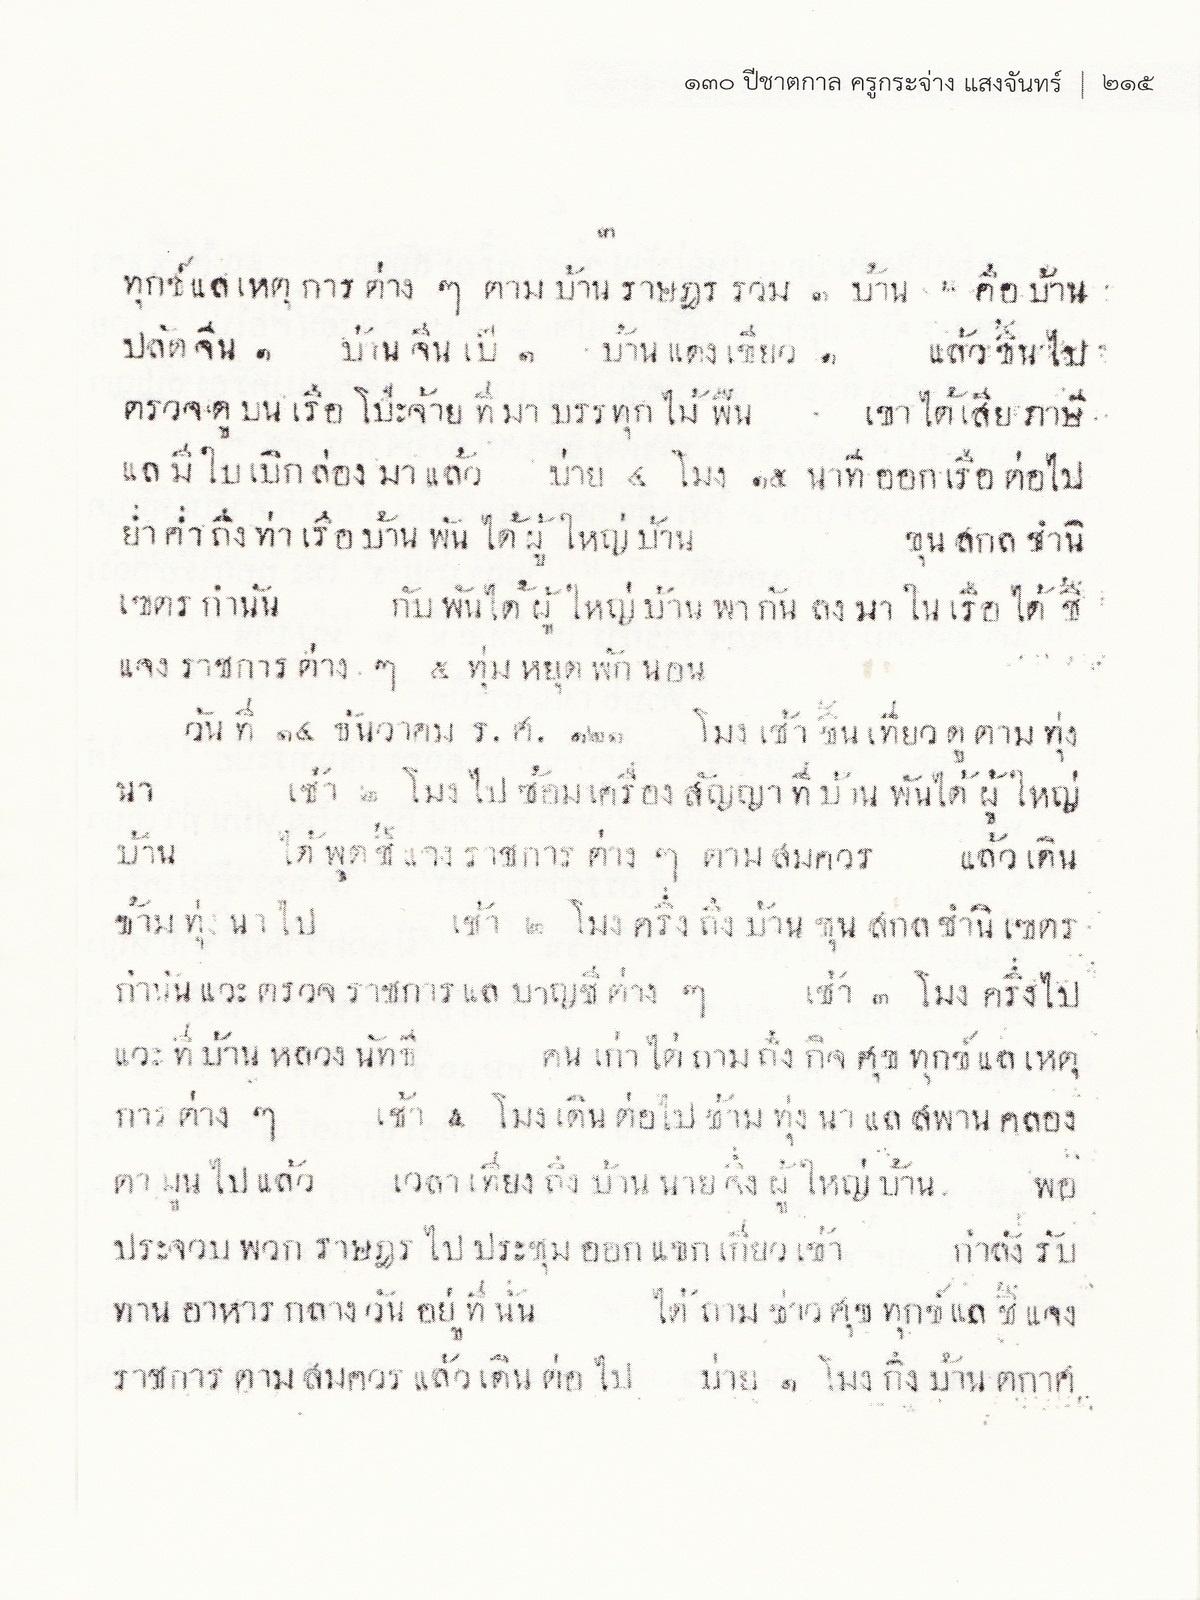 ๑๓๐ ปีชาตกาล ครูกระจ่าง แสงจันทร์ | ๒๑๕
๓
ทุกข์แลเหตุ การ ต่าง ๆ ตาม บ้าน ราษฎร รวม ๓ บ้าน คือ บ้าน
ปลัด จีน ๑ บ้าน จีน เป๋ ๑ บ้าน แดง เขียว ๑ แล้ว ขึ้น ไป
ตรวจ ดู บน เรือ โป๊ะจ้าย ที่ มา บรรทุก ไม้ ฟืน เขา ได้ เสีย ภาษี
แล มี ใบ เบิก ล่อง มา แล้ว บ่าย ๔ โมง ๑๕ นาที ออก เรือ ต่อไป
ย่ำ ค่ำ ถึง ท่า เรือ บ้าน พัน ได้ ผู้ ใหญ่ บ้าน ขุน สกล ชำนิ
เขตร กำนัน กับ พัน ได้ ผู้ ใหญ่ บ้าน พา กัน ลง มา ใน เรือ ได้ ชี้
แจง ราชการ ต่าง ๆ ๕ ทุ่ม หยุด พัก นอน
วัน ที่ ๑๔ ธันวาคม ร.ศ. ๑๒๑ โมง เช้า ขึ้น เที่ยว ดู ตาม ทุ่ง
นา เช้า ๒ โมง ไป ซ้อม เครื่อง สัญญา ที่ บ้าน พัน ได้ ผู้ ใหญ่
บ้าน ได้ พูด ชี้ แจง ราชการ ต่าง ๆ ตาม สมควร แล้ว เดิน
ข้าม ทุ่ง นา ไป เช้า ๒ โมง ครึ่ง ถึง บ้าน ขุน สกล ชำนิ เขตร
กำนัน แวะ ตรวจ ราชการ แล บาญชี ต่าง ๆ เช้า ๓ โมง ครึ่ง ไป
แวะ ที่ บ้าน หลวง นัทธี คน เก่า ได้ ถาม ถึง กิจ ศุข ทุกข์ แล เหตุ
การ ต่าง ๆ เช้า ๕ โมง เดิน ต่อไป ข้าม ทุ่ง นา แล สพาน คลอง
ตา มูน ไป แล้ว เวลา เที่ยง ถึง บ้าน นาย จึ่ง ผู้ ใหญ่ บ้าน พอ
ประจวบ พวก ราษฎร ไป ประชุม ออก แขก เกี่ยว เข้า กำลัง รับ
ทาน อาหาร กลาง วัน อยู่ ที่ นั่น ได้ ถาม ข่าว ศุข ทุกข์ แล ชี้ แจง
ราชการ ตาม สมควร แล้ว เดิน ต่อ ไป บ่าย ๑ โมง ถึง บ้าน ตกาศ